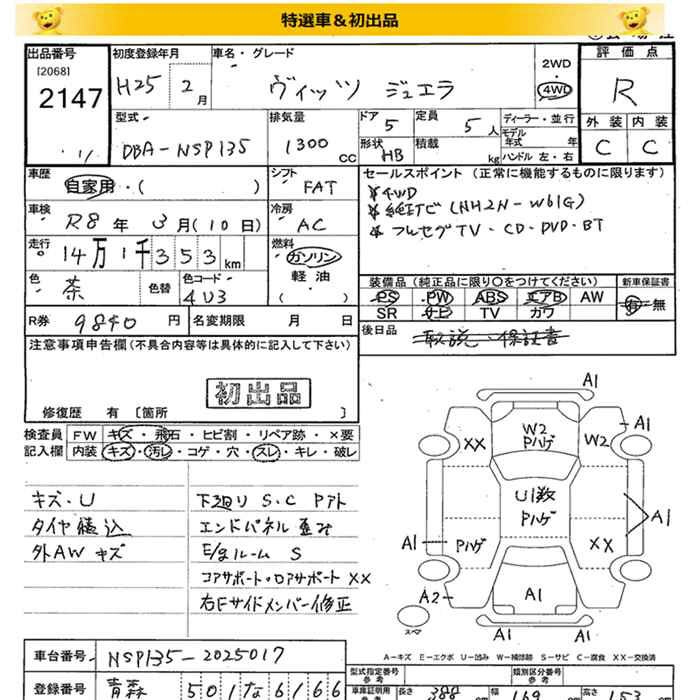 特選車&初出品
出品番号
[2068]
2147
初度登録年月
H25 2月
車名・グレード
ヴィッツ ジュエラ
2WD
4WD
評価点
R
外装 内装
C C
型式
DBA-NSP135
排気量
1300 cc
ドア
5
定員
5人
形状
HB
積載
kg
ディーラー・並行
モデル年式 年
ハンドル 左・右
車歴
自家用・( )
シフト
FAT
車検
R8年3月(10日)
冷房
AC
走行
14万1千353km
燃料
ガソリン
軽油
( )
色
茶
色替
色コード
4U3
R券 9840円
名変期限 月 日
セールスポイント (正常に機能するものに限ります)
*4WD
*純正ナビ(NH2N-W61G)
*フルセグTV・CD・DVD・BT
装備品 (純正品に限り○をつけてください)
新車保証書
PS PW ABS エアB AW
SR ナビ TV カワ
有・無
後日品
取説・保証書
注意事項申告欄(不具合内容等は具体的に記入して下さい)
初出品
修復歴 有 [箇所 ]
検査員記入欄
FW キズ・飛石・ヒビ割・リペア跡・×要
内装 キズ・汚レ・コゲ・穴・スレ・キレ・破レ
キズ・U
タイヤ積込
外AWキズ
下廻りS・C Pアト
エンドパネル歪み
E/gルームS
コアサポート・ロアサポートXX
右Fサイドメンバー修正
A1
A1
W2
Pハゲ
XX
W2
U1数
Pハゲ
A1
A1
Pハゲ
XX
A2
A1
A1
A1
スペア
A-キズ E-エクボ U-凹み W-補修跡 S-サビ C-腐食 XX-交換済
車台番号 NSP135-2025017
登録番号 青森 501な6166
型式指定番号
参考
類別区分番号
参考
車庫証明用
参考
長さ 388
幅 169
高さ 153